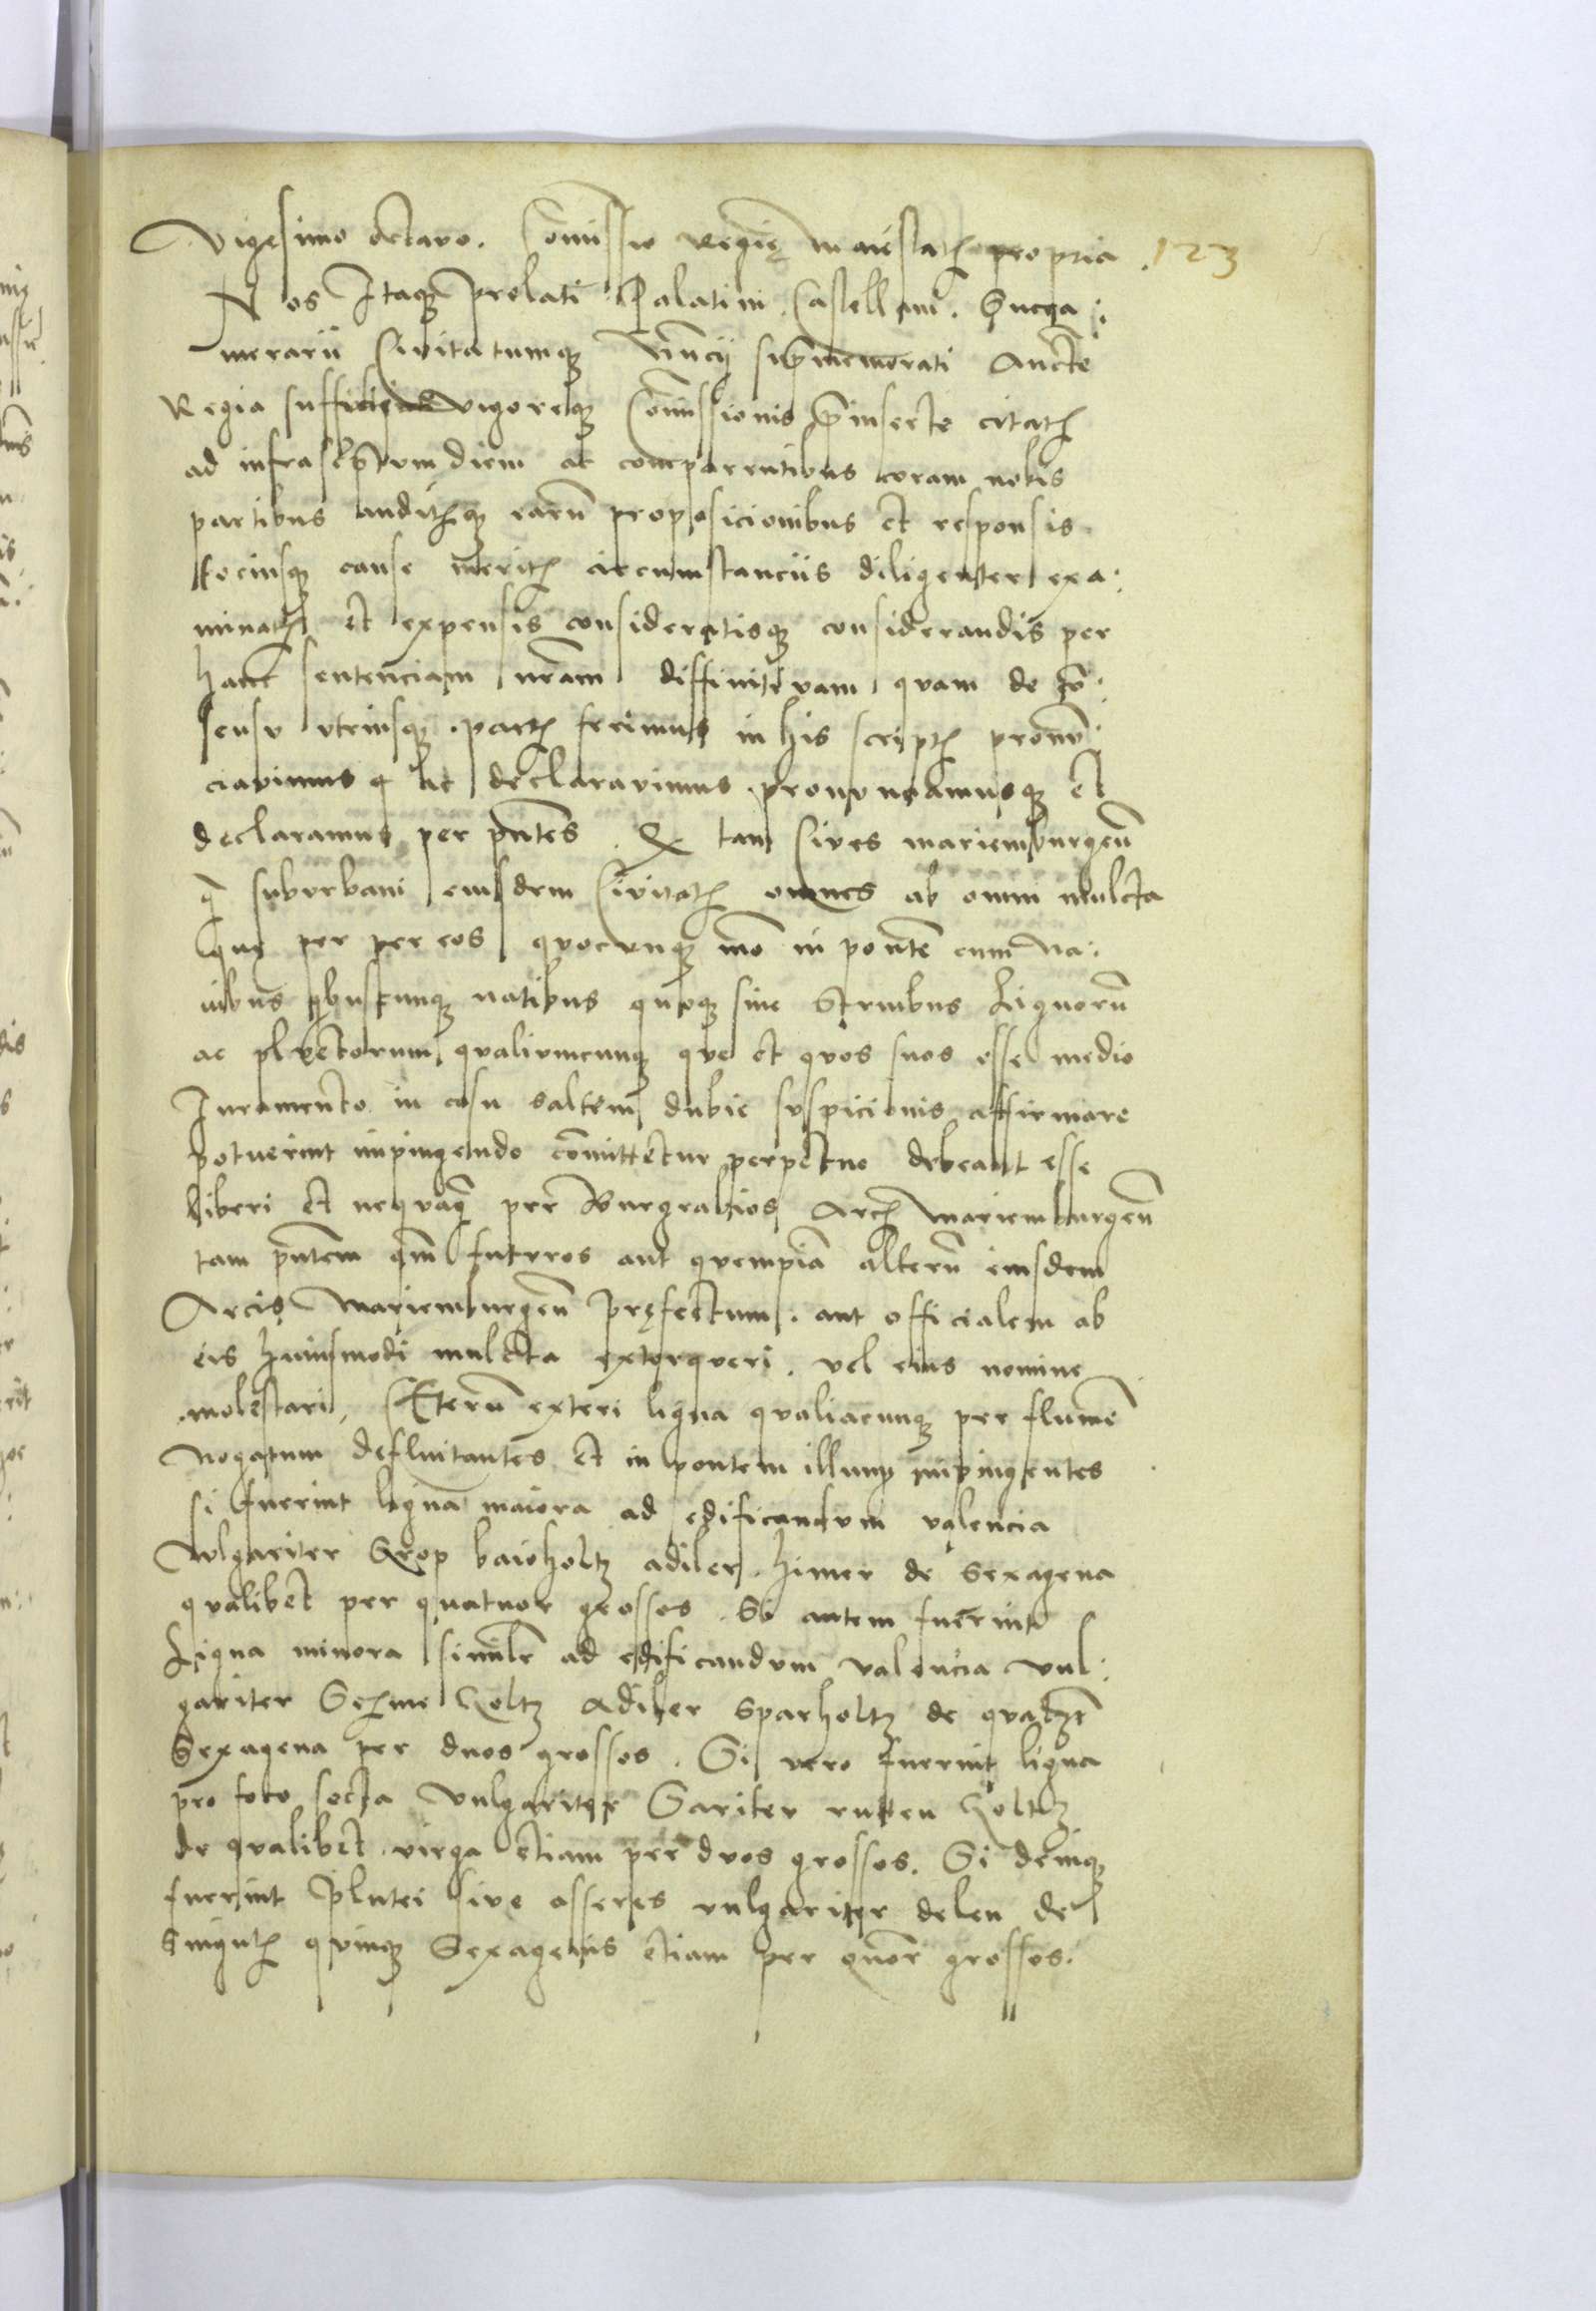 Vigesimo octavo. Comissio Regię maiestatis propria . 123
Nos Itaque prelati Palatini Castellani. Succa:
merarii Civitatumque Nuncij supramemorati Aucte
Regia sufficienter vigoreque Comissionis preinserte citatis
ad infrascriptum diem ac comparentibus coram nobis
partibus auditisque earum proposicionibus et responsis
hociusque cause meritis circumstanciis diligenter exa:
minatis et expensis consideratisque considerandis per
hanc sentenciam nram diffinitivam quam de con:
sensu utriusque partis fecimus in his scriptis pronun:
ciavimus et ac declaravimus pronunciamusque et
declaramus per pntes. Quod tam Cives mariemburgen
quam suburbani eiusdem Civitatis omnes ab omni mulcta
que per per eos quocunque modo in pontem cum Na:
uibus quibuscunque ratibus quoque sine Struibus Lignorum
ac plutetorum qualiumcunque que et quos suos esse medio
Iuramento in casu saltem dubie suspicionis affirmare
potuerint impingendo committetur perpetuo debeant esse
liberi et nequaquam per Burgrabios Arcis Mariemburgen
tam pntem quam futuros aut quempiam alterum eiusdem
Arcis Mariemburgen pręfectum. aut officialem ab
eis huiusmodi mulcta extorqueri. vel eius nomine
molestari, Ceterum exteri ligna qualiacunque per flumen
Nogatum defluitantes et in pontem illum impingentes
si fuerint ligna maiora ad edificandum valencia
Vulgariter Grop baioholtz adiler. himer de Sexagena
qualibet per quatuor grossos. Si autem fuerint
Ligna minora similiter ad edificandum valencia vul:
gariter holtz Adiher Sparholtz de qualibet
Sexagena per duos grossos. Si vero fuerint ligna
pro foco secta Vulgariter Gariter rutten holtz
de qualibet virga etiam per duos grossos. Si denique
fuerint plutei sive asseres vulgariter delen de
singulis quinque Sexagenis etiam per quatuor grossos.